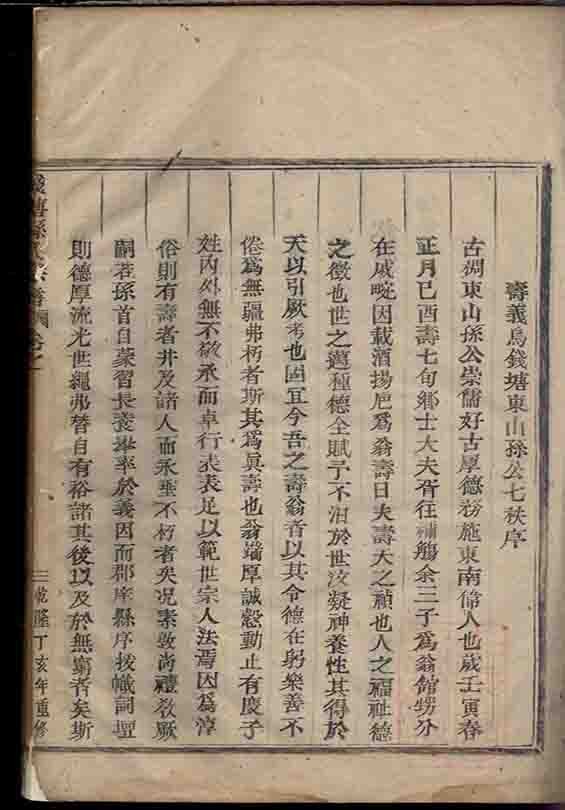 壽義烏錢塘東山孫公七秩序
古稠東山孫公崇儒好古厚德務施東南偉人也歲壬寅春
正月己酉壽七旬鄉士大夫胥往稱觴余三子爲翁館甥分
在戚畹因載酒揚卮爲翁壽曰夫壽天之禎也人之福祉德
之徵也世之邁種德全賦予不汨於世汶凝神養性其得於
天以引厥考也固宜今吾之壽翁者以其令德在躬樂善不
倦爲無疆弗朽者斯其爲眞壽也翁端厚誠慤動止有度子
姓內外無不敬承而卓行表表足以範世宗人法焉因爲淳
俗則有壽者并及諸人而永垂不朽者矣況素敦尚禮敎厥
嗣若孫首自蒙習長養率於義因而郡庠縣序拔幟詞壇
則德厚流光世繩弗替自有裕諸其後以及於無窮者矣斯
錢塘孫氏宗譜
乾隆丁亥年重修